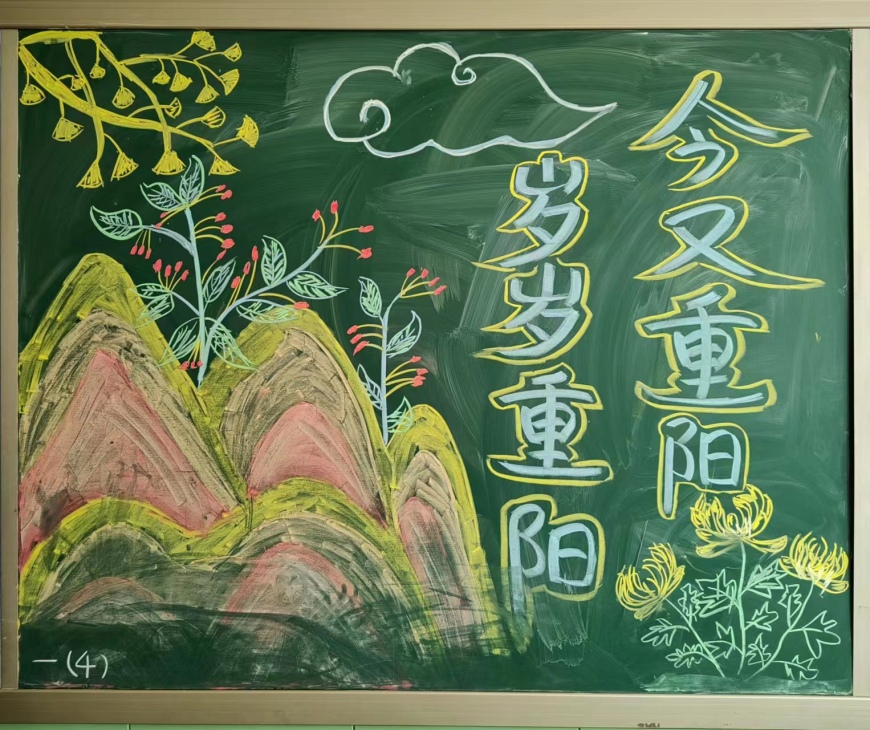 今又重阳
岁岁重阳
一(4)